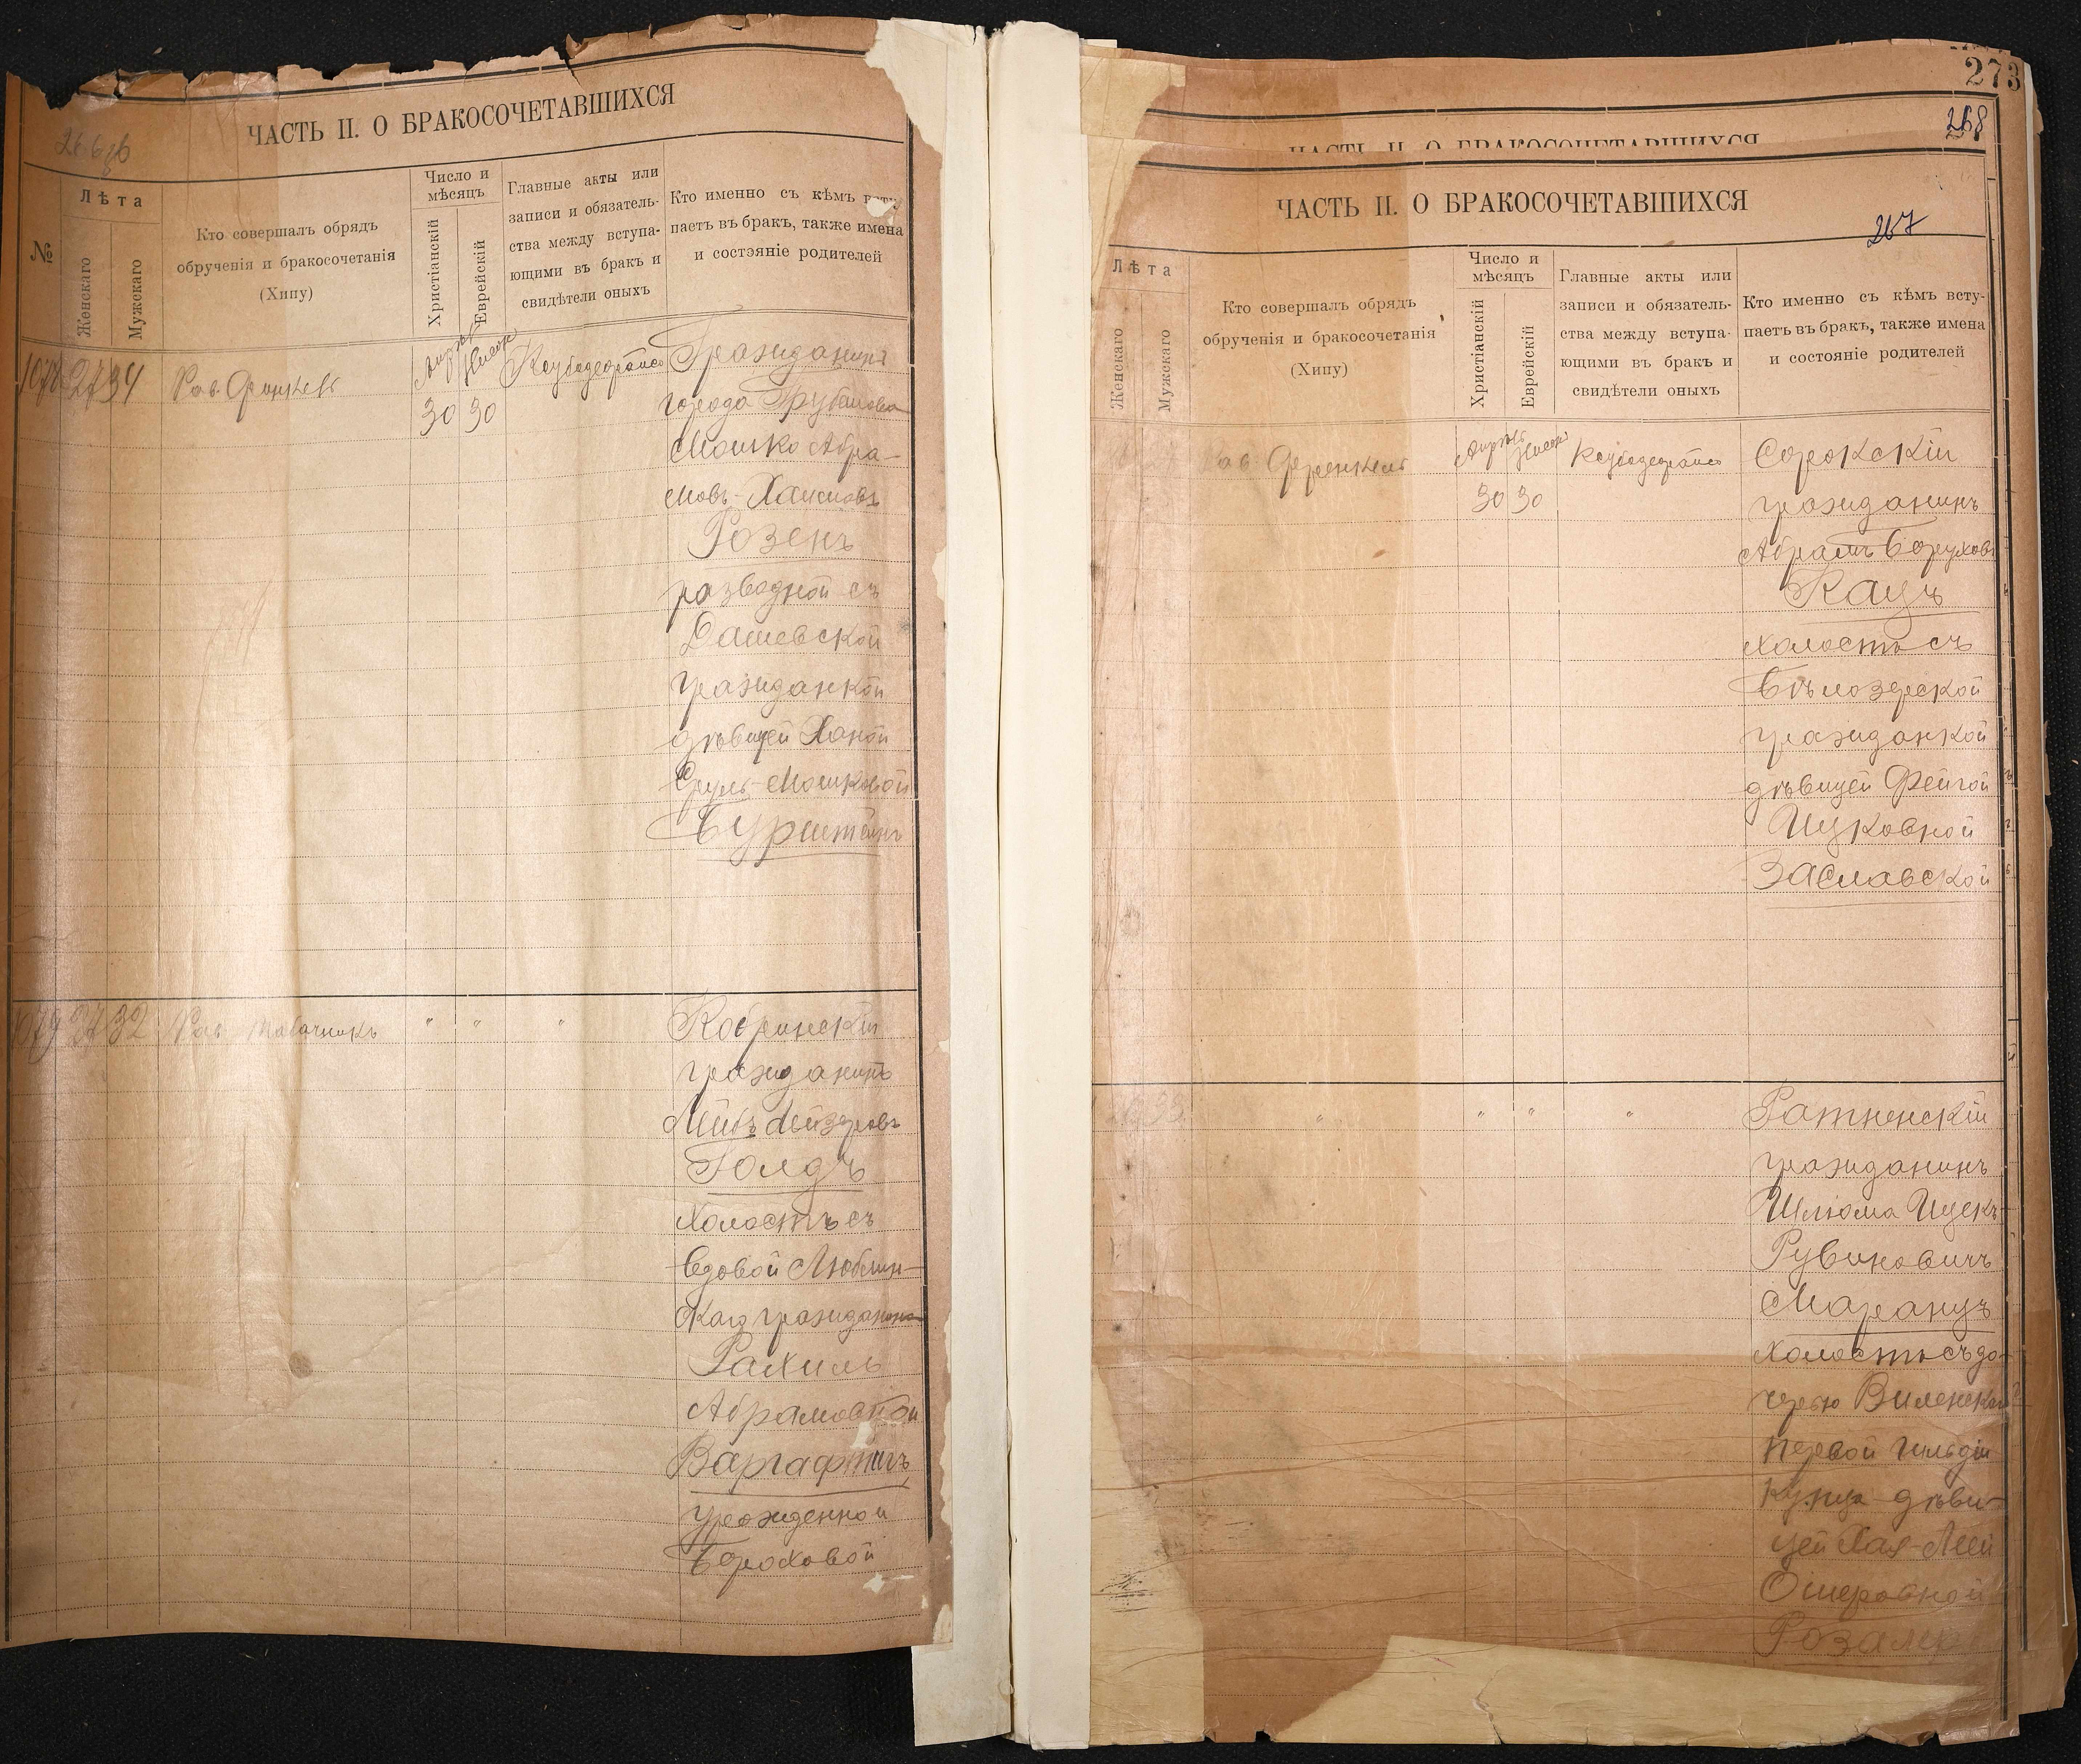 ЧАСТЬ II. О БРАКОСОЧЕТАВШИХСЯ
266
№
Лѣта
Женскаго
Мужскаго
Кто совершалъ обрядъ
обрученія и бракосочетанія
(Хипу)
Число и
мѣсяцъ
Христіанскій
Еврейскій
Главные акты или
записи и обязатель-
ства между вступа-
ющими въ бракъ и
свидѣтели оныхъ
Кто именно съ кѣмъ всту-
паетъ въ бракъ, также имена
и состояніе родителей
1078 27 34
Рав. Френкель
Апрѣль Нисонъ
30 30
Гражданинъ
города Грубешова
Мошко Абра-
мовъ-Хаимовъ
Розенъ
разводной съ
Дашевской
гражданкой
дѣвицей Ханой
Сруль-Мошковой
Бурштейнъ
1079 27 32
Рав. Табачникъ
" " "
Кобринскій
гражданинъ
Лейбъ Лейзеровъ
Голдъ
холостъ съ
вдовой Люблин-
ская гражданка
Рахиль
Абрамовной
Варгафтигъ
урожденной
Бероховой
273
268
ЧАСТЬ II. О БРАКОСОЧЕТАВШИХСЯ
ЧАСТЬ II. О БРАКОСОЧЕТАВШИХСЯ
267
Лѣта
Женскаго
Мужскаго
Кто совершалъ обрядъ
обрученія и бракосочетанія
(Хипу)
Число и
мѣсяцъ
Христіанскій
Еврейскій
Главные акты или
записи и обязатель-
ства между вступа-
ющими въ бракъ и
свидѣтели оныхъ
Кто именно съ кѣмъ всту-
паетъ въ бракъ, также имена
и состояніе родителей
Рав. Френкель
Апрѣль Нисонъ
30 30
Сорокскій
гражданинъ
Абрамъ Боруховъ
Кацъ
холостъ съ
Бѣлозерской
гражданкой
дѣвицей Фейгой
Ицковной
Заславской
" " " "
Ратненскій
гражданинъ
Шлиома Ицекъ-
Рубиновичъ
Маранцъ
холостъ съ до-
черью Виленскаго
первой гильдіи
купца дѣви-
цей Хая-Леей
Ошеровной